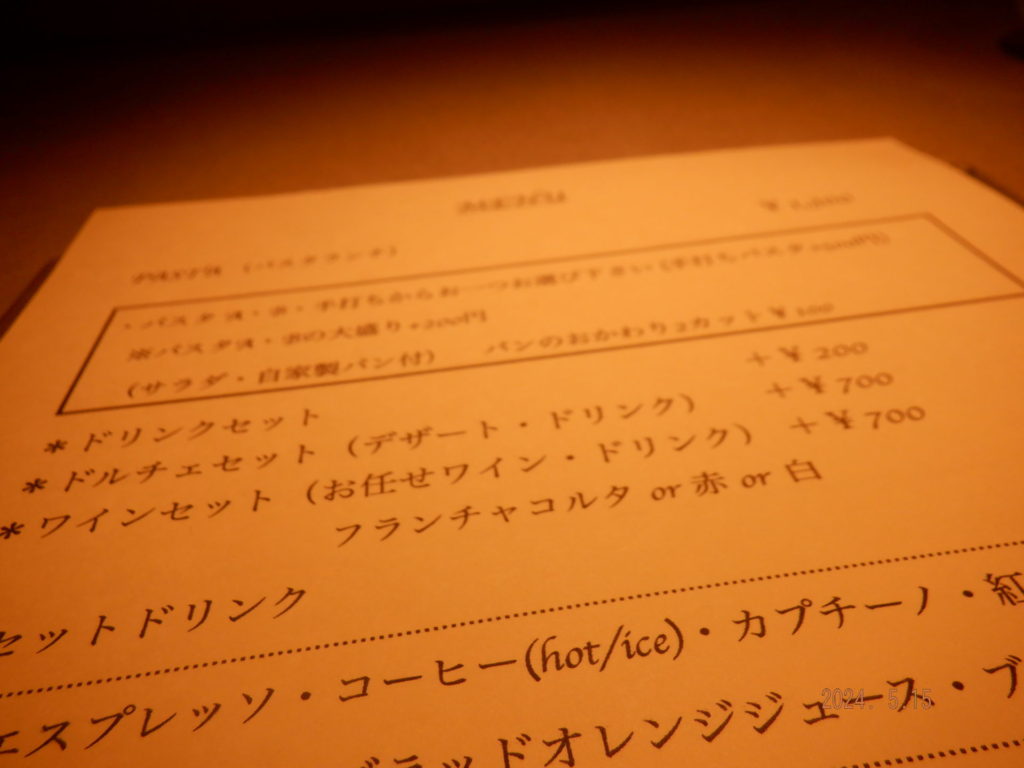 MENU
PASTA (パスタランチ)
・パスタA・B・手打ちからお一つお選び下さい(手打ちパスタ
※パスタA・Bの大盛り+200円
(サラダ・自家製パン付) パンのおかわり2カット¥100
* ドリンクセット +¥200
* ドルチェセット (デザート・ドリンク) +¥700
* ワインセット (お任せワイン・ドリンク) +¥700
フランチャコルタ or 赤 or 白
セットドリンク
エスプレッソ・コーヒー(hot/ice)・カプチーノ・紅
ブラッドオレンジジュース・ブ
2024. 5.15